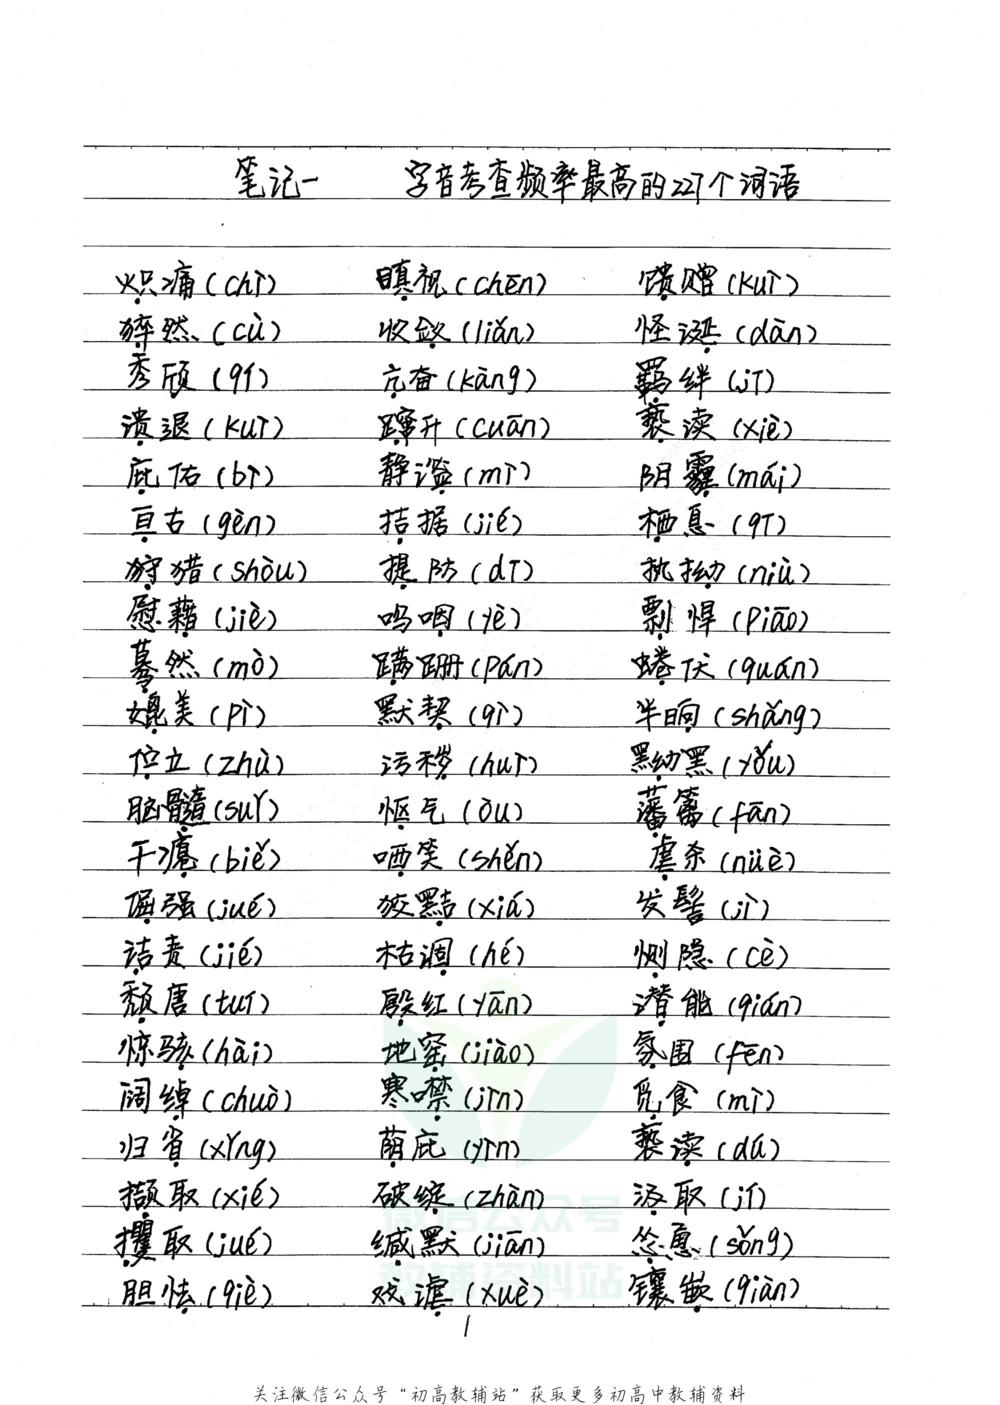 笔记一 字音考查频率最高的227个词语
炽痛(chì) 瞋视(chēn) 馈赠(kuì)
猝然(cù) 收敛(liǎn) 怪诞(dàn)
秀颀(qí) 亢奋(kàng) 羁绊(jī)
溃退(kuì) 蹿升(cuān) 亵渎(xiè)
庇佑(bì) 静谧(mì) 阴霾(mái)
亘古(gèn) 拮据(jié) 栖息(qī)
狩猎(shòu) 提防(dī) 执拗(niù)
慰藉(jiè) 呜咽(yè) 剽悍(piāo)
蓦然(mò) 蹒跚(pán) 蜷伏(quán)
媲美(pì) 默契(qì) 半晌(shǎng)
伫立(zhù) 污秽(huì) 黑黝黑(yǒu)
脑髓(suǐ) 怄气(òu) 藩篱(fān)
干瘪(biě) 哂笑(shěn) 虐杀(nüè)
倔强(jué) 狡黠(xiá) 发髻(jì)
诘责(jié) 枯涸(hé) 恻隐(cè)
颓唐(tuí) 殷红(yān) 潜能(qián)
惊骇(hài) 地窖(jiào) 氛围(fēn)
阔绰(chuò) 寒噤(jìn) 觅食(mì)
归省(xǐng) 荫庇(yìn) 亵渎(dú)
撷取(xié) 破绽(zhàn) 汲取(jí)
攫取(jué) 缄默(jiān) 怂恿(sǒng)
胆怯(qiè) 戏谑(xuè) 镶嵌(qiàn)
1
微信公众号
教辅资料站
关注微信公众号“初高教辅站”获取更多初高中教辅资料